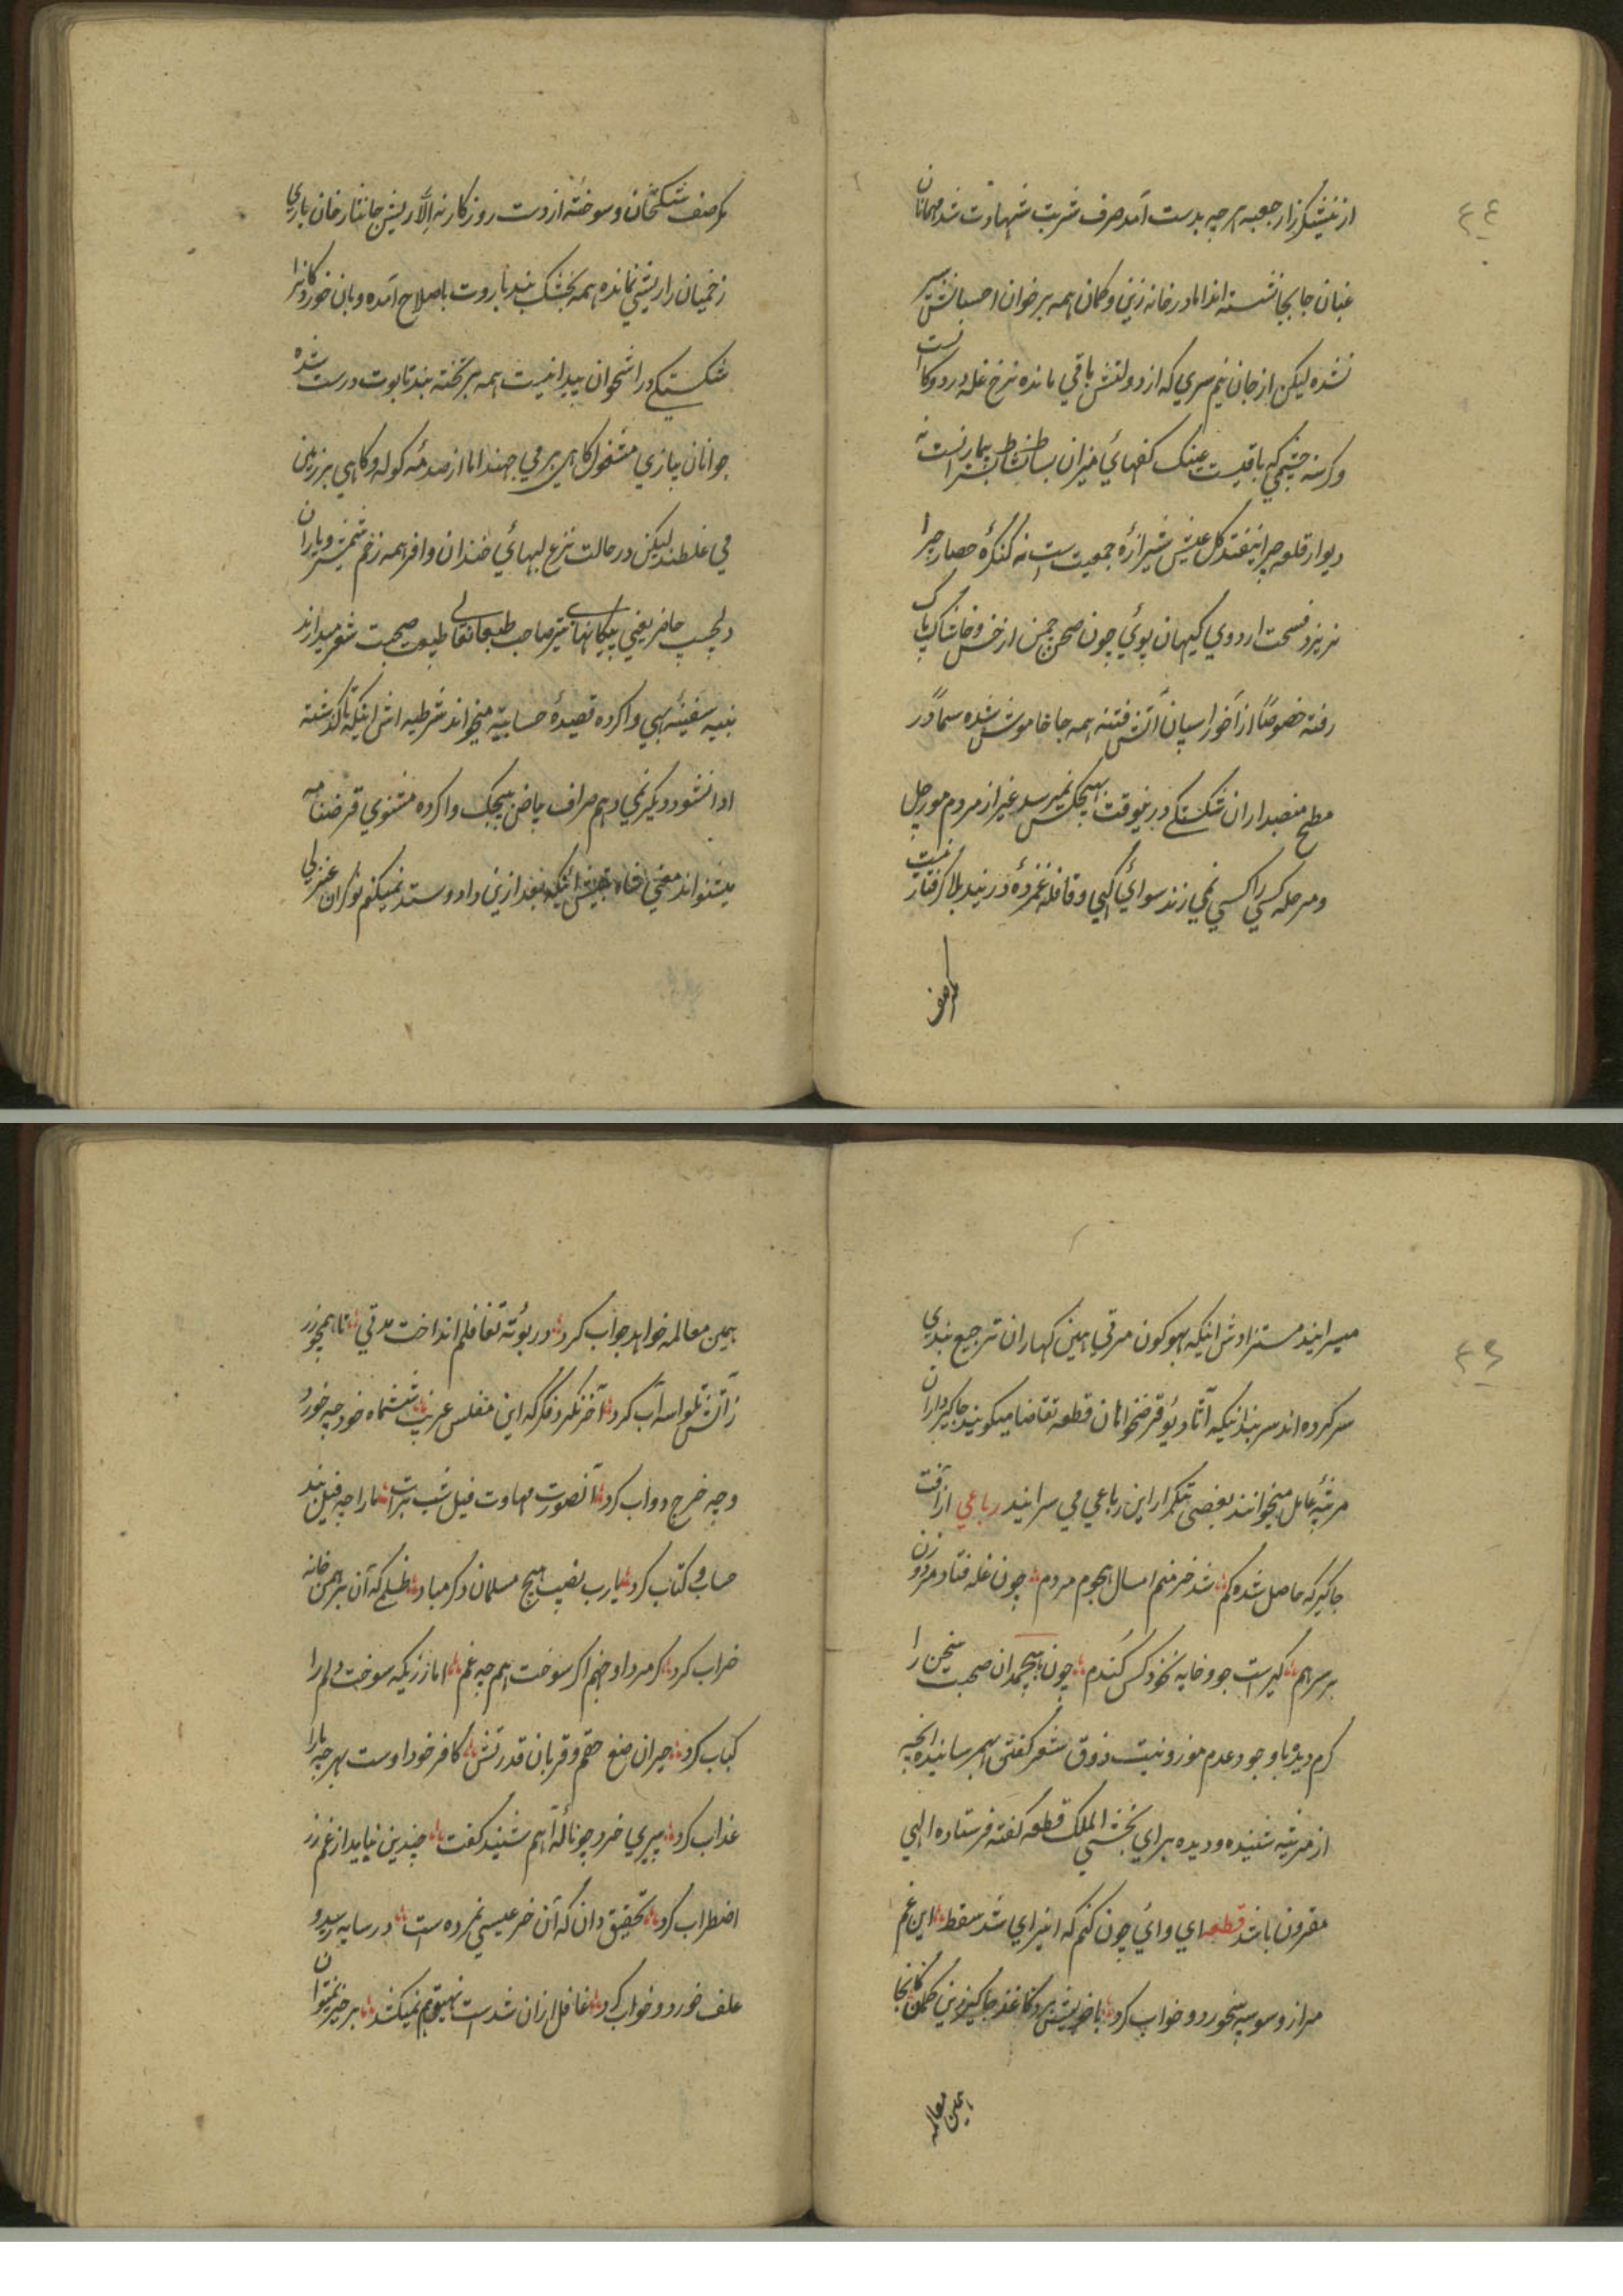 ٤٤
از نیشکرزار جعبه هر چه بدست آمد صرف شربت شهادت شد مهمانان
عنان جابجا نشسته اند اما در خانه زین و کمان همه بر خوان احسانش سیر
نشده لیکن از جان نیم سری که از دولتش باقی مانده نرخ غله در دوکانست
و گرسنه چشمی که باقیست عینک کفهای میزان بساط نشاط بیمارانست نه
دیوار قلعه چرا نیفتد کل عیش شیرازهٔ جمعیت ست نه کنگرهٔ حصار چرا
نریزد فسحت اردوی کیهان پوی چون صحن چمن از خس و خاشاک پاک
رفته خصوصاً از آخور اسپان آتش فتنه همه جا خاموش شده سیما در
مطبخ منصبداران شکستگی درینوقت بهیچکس نمیرسد غیر از مردم مورچل
و مرحله کسی را کسی نمی زند سوای کهی و قافله غمزدهٔ در بند بلا گرفتار نیست
مگر صف
مگر صف شکنخان و سوخته از دست روزگار نه الا ریش جانثار خان باری
زخمیان را ریشی نمانده همه بخشک بند باروت باصلاح آمده و بان خوردگانرا
شکستگی در استخوان پیدا نیست همه بر تخته بند تابوت درست شده
جوانان ببازی مشغول گاهی بر می جهند اما از صدمهٔ گوله و گاهی بر زمین
می غلطند لیکن در حالت نزع لبهای خندان وافر همه زخم شمشیر و یاران
دلچسپ حاضر یعنی پیکانهای تیر صاحب طبعان طبعت صحبت شعر میدارند
بنیه سفینه بهی وا کرده قصیدهٔ حسابیه میخواند شرطیه اش اینکه تا گذشته
ادا نشود دیگر نمی دهم صراف بیاض بیجک وا کرده مثنوی قرضنامه
میشنواند معنی اینکه بعد ازین داد و ستد نمیکنم نوکران غزلی
٤٥
میسرایند مستزادش اینکه بهوکون مرتی همین کهاران ترجیع بندی
سر کرده اند سربند اینکه آتا دیؤ قرضخواهان قطعه تقاضا میگویند جاگیرداران
مرثیه عامل میخوانند بعضی بتکرار این رباعی می سرایند رباعی از آفت
جاگیر که حاصل شده کم شد خرمنم امسال هجوم مردم چون غله فتاد مرد و زن
بر سر هم گیرست جو و خایه نخود کس گندم چون هیچمدان صحبت سخن را
گرم دیده با وجود عدم موزونیت ذوق شعر گفتن بهمرسانیده آنچه
از مرثیه شنیده و دیده برای بخشی الملک قطعه گفته فرستاده الهی
مقرون باشد قطعه ای وای چون کنم که اخیرای شد سقط این غم
مرا ز وسوسه بیخورد و خواب کرد با خویش برد کاغذ جاگیر زین
همین معامله
همین معامله خواهد جواب کرد در بوتهٔ تغافلم انداخت مدتی تا همچو زر
ز آتش تلواسه آب کرد آخر نکرد فکر که این مفلس غریب ششماه خود چه خورد
و چه خرج دواب کرد آنصورت مهاوت فیل شب برات ما را چه فیل بند
حساب و کتاب کرد یارب نصیب هیچ مسلمان دگر مباد ظلمی که آن برهمن خانه
خراب کرد گر مرد او خرم اگر سوخت هم چه غم اما ز زریکه سوخت دلم را
کباب کرد حیران صنع حقم و قربان قدرتش کافر خود اوست بهر چه ما را
عذاب کرد پیری خرد چو نالهٔ آهم شنید گفت چندین نباید از غم زر
اضطراب کرد تحقیق دان که آن خر عیسی نمرده ست در سایه رسید و
علف خورد و خواب کرد غافل ازان شدست نهیق هم نمیکند بر خیز میتوان